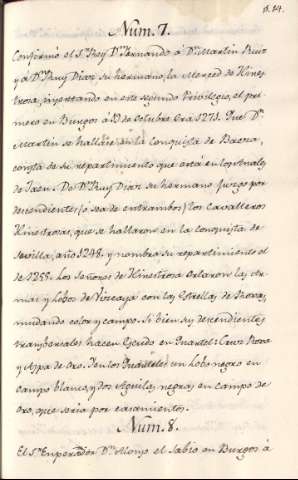 Num. 7.
Confirmó el S.r Rey D.n Fernando á D.n Martin Ruiz
y á D.n Ruy Diaz su hermano, la Merced de Hines
trora, insertando en este segundo Privilegio, el pri
mero en Burgos á 30 de Octubre Era 1273. Que D.n
Martin se hallase en la conquista de Baeza,
consta de su repartimiento que está en los Anales
de Jaen. De D.n Ruy Diaz su hermano juzgo por
descendientes (ó sea de entrambos) los Cavalleros
Hinestrosas, que se hallaron en la conquista de
Sevilla, año 1248. y nombra su repartimiento el
de 1253. Los Señores de Hinestrosa orlaron las Ar
mas y Lobos de Vizcaya con las Estrellas de Roxas,
mudando color y campo. Si bien sus descendientes
transversales hacen Escudo en Quartel: Cruz Roxa
y Aspa de Oro. En los Quarteles un Lobo negro en
campo blanco, y dos Aguilas negras en campo de
Oro, que seria por casamientos.
Num. 8.
El S.r Emperador D.n Alonso el Sabio en Burgos á